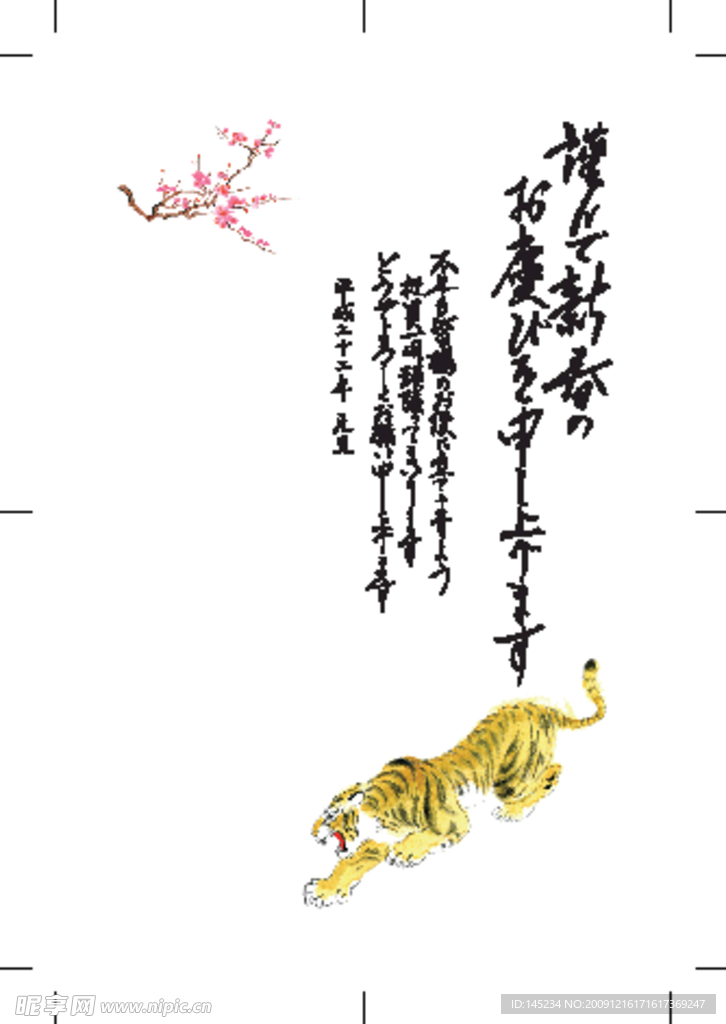 謹んで新春の
お慶びを申し上げます
本年も皆様のお役に立てますよう
社員一同頑張ってまいります
どうぞよろしくお願い申し上げます
平成二十二年 元旦
昵享网 www.nipic.cn
ID:145234 NO:20091216171617369247